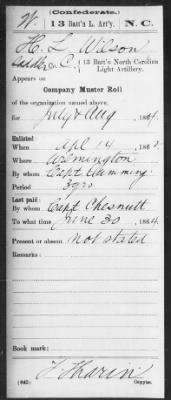 (Confederate.)
W. 13 Batt'n L. Art'y. N.C.
H. L. Wilson
C, 13 Batt'n North Carolina Light Artillery.
Appears on
Company Muster Roll
of the organization named above,
for July & Aug, 1864.
Enlisted
When Apl 14, 186
Where Wilmington
By whom Capt Cumming
Period 3 yrs
Last paid:
By whom Capt Chesnutt
To what time June 30, 1864.
Present or absent Not stated
Remarks:
Book mark:
(642) Copyist.